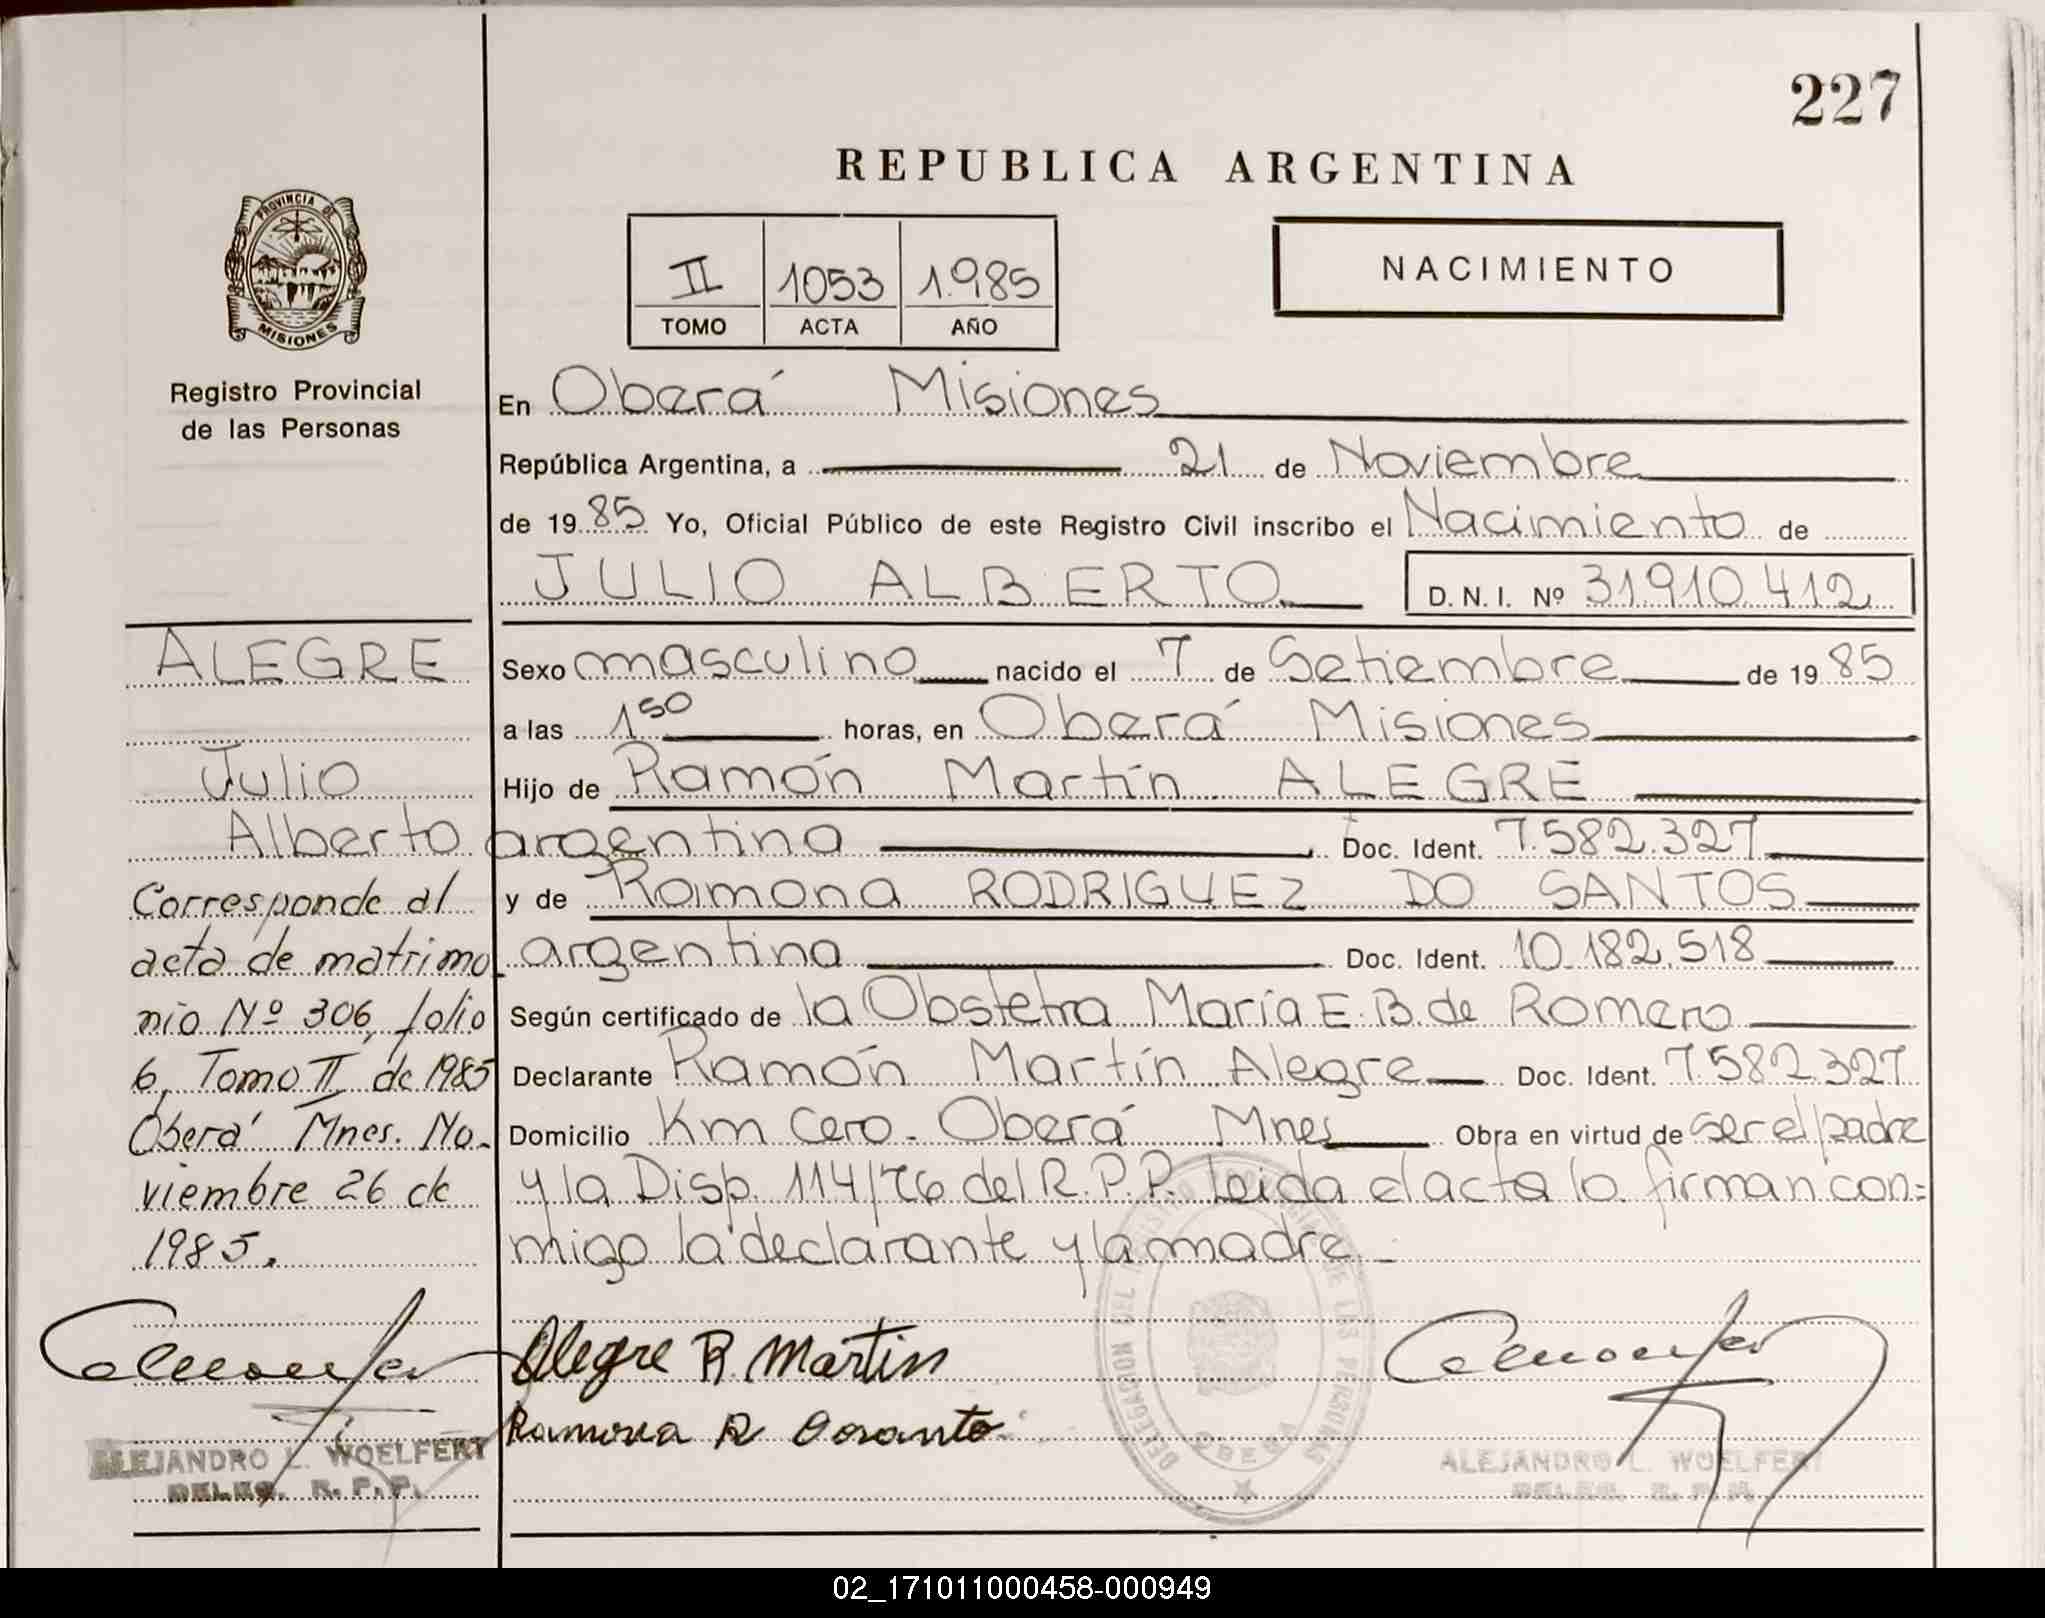 227
REPUBLICA ARGENTINA
PROVINCIA DE
MISIONES
Registro Provincial
de las Personas
II 1053 1.985
TOMO ACTA AÑO
NACIMIENTO
En Oberá Misiones
República Argentina, a 21 de Noviembre
de 19 85 Yo, Oficial Público de este Registro Civil inscribo el Nacimiento de
JULIO ALBERTO D.N.I. Nº 31.910.412
Sexo masculino nacido el 7 de Setiembre de 19 85
a las 1 50 horas, en Oberá Misiones
Hijo de Ramón Martín ALEGRE
argentina Doc. Ident. 7.582.327
y de Ramona RODRIGUEZ DO SANTOS
argentina Doc. Ident. 10.182.518
Según certificado de la Obstetra María E. B. de Romero
Declarante Ramón Martín Alegre Doc. Ident. 7.582.327
Domicilio Km Cero. Oberá Mnes Obra en virtud de ser el padre
y la Disp. 114/76 del R.P.P. Leida el acta lo firman con=
migo la declarante y la madre.
ALEGRE
Julio
Alberto
Corresponde al
acta de matrimo
nio Nº 306, folio
6, Tomo II de 1985
Oberá Mnes. No-
viembre 26 de
1985.
Alegre R. Martin
Ramona R
DELEGACION DEL REGISTRO PROVINCIAL DE LAS PERSONAS
OBERA
ALEJANDRO L. WOELFERT
DELEG. R.P.P.
ALEJANDRO L. WOELFERT
DELEG. R.P.P.
02_171011000458-000949